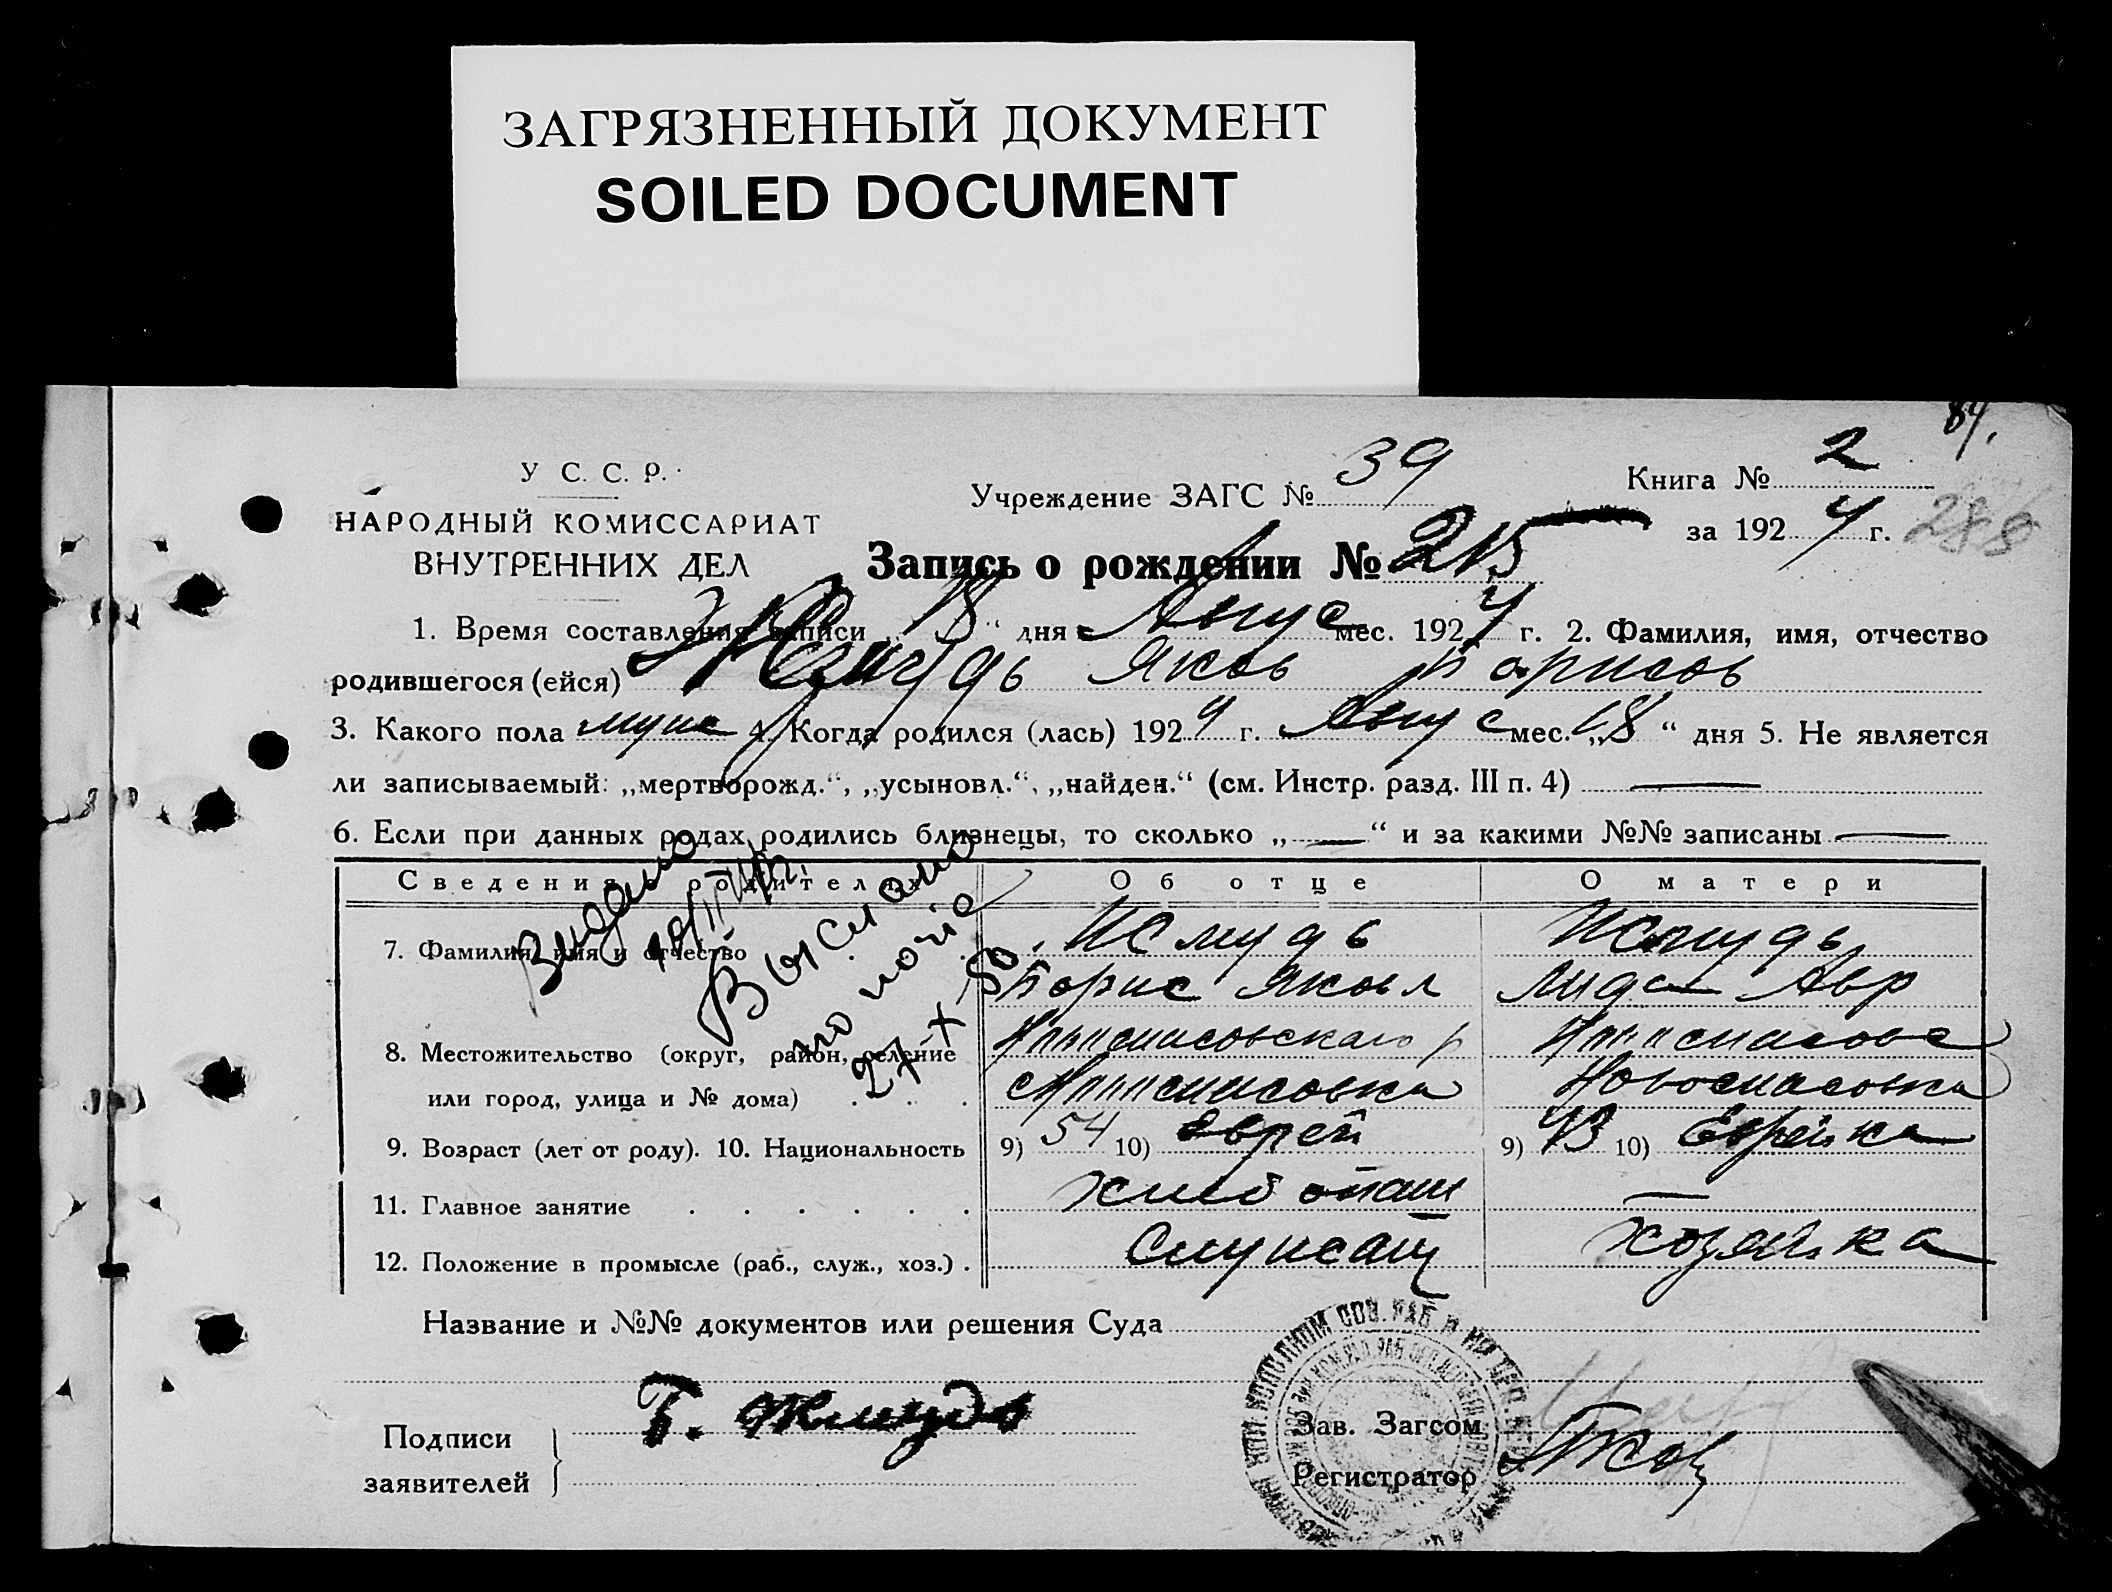 ЗАГРЯЗНЕННЫЙ ДОКУМЕНТ
SOILED DOCUMENT
84.
У С. С. Р.
НАРОДНЫЙ КОМИССАРИАТ
ВНУТРЕННИХ ДЕЛ
Учреждение ЗАГС № 39
Книга № 2
за 1924 г.
288
Запись о рождении № 215
1. Время составления записи „18“ дня Авгус мес. 1924 г. 2. Фамилия, имя, отчество
родившегося (ейся) Яков Борисов
3. Какого пола муж 4. Когда родился (лась) 1924 г. Авгус мес. „18“ дня 5. Не является
ли записываемый: „мертворожд.“, „усыновл.“, „найден.“ (см. Инстр. разд. III п. 4) —
6. Если при данных родах родились близнецы, то сколько „—“ и за какими №№ записаны —
Сведения о родителях Об отце О матери
7. Фамилия, имя и отчество Жмудь Жмудь
Борис Яковл Лида Авр
8. Местожительство (округ, район, селение
или город, улица и № дома) Новоспасовка
9. Возраст (лет от роду). 10. Национальность 9) 54 10) Еврей 9) 43 10) Еврейка
11. Главное занятие —
12. Положение в промысле (раб., служ., хоз.) Служащ хозяйка
Видано
Выслано
по почте
27-X-50
Название и №№ документов или решения Суда
Подписи
заявителей
Б. Жмудь
Зав. Загсом
Регистратор